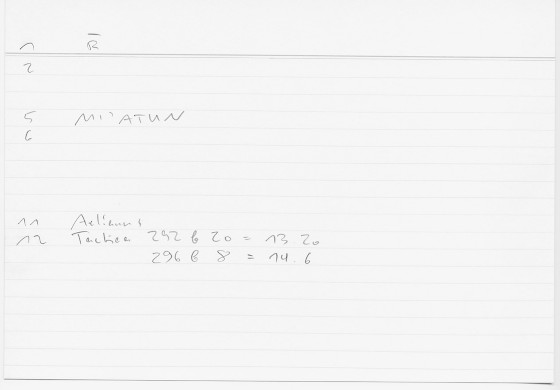 1 R̅
2
5 MI'ATUN
6
11 Aelianus
12 Tactica 292 b 20 = 13 20
296 b 8 = 14. 6